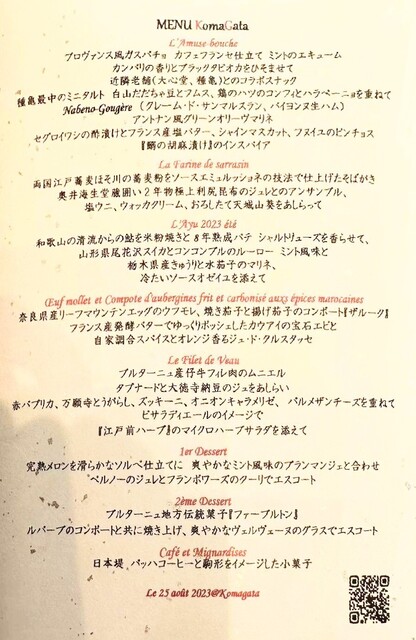 MENU KomaGata
L'Amuse-bouche
プロヴァンス風ガスパチョ カフェフランセ仕立て ミントのエキューム
カンパリの香りとブラックタピオカをひそませて
近隣老舗(大心堂、種亀)とのコラボスナック
種亀最中のミニタルト 白山だだちゃ豆とフムス、鶏のハツのコンフィとハラペーニョを重ねて
Nabeno-Gougère (クレーム・ド・サンマルスラン、バイヨンヌ生ハム)
アントナン風グリーンオリーヴマリネ
セグロイワシの酢漬けとフランス産塩バター、シャインマスカット、フヌイユのピンチョス
『鰯の胡麻漬け』のインスパイア
La Farine de sarrasin
両国江戸蕎麦ほそ川の蕎麦粉をソースエミュルッショネの技法で仕上げたそばがき
奥井海生堂蔵囲い2年物極上利尻昆布のジュレとのアンサンブル、
塩ウニ、ウォッカクリーム、おろしたて天城山葵をあしらって
L'Ayu 2023 été
和歌山の清流からの鮎を米粉焼きと8年熟成パテ シャルトリューズを香らせて、
山形県尾花沢スイカとコンコンブルのルーロー ミント風味と
栃木県産きゅうりと水茄子のマリネ、
冷たいソースオゼイユを添えて
Œuf mollet et Compote d'aubergines frit et carbonisé auxs épices marocaines
奈良県産リーフマウンテンエッグのウフモレ、焼き茄子と揚げ茄子のコンポート『ザルーク』
フランス産発酵バターでゆっくりポッシェしたカウアイの宝石エビと
自家調合スパイスとオレンジ香るジュ・ド・クルスタッセ
Le Filet de Veau
ブルターニュ産仔牛フィレ肉のムニエル
タプナードと大徳寺納豆のジュをあしらい
赤パプリカ、万願寺とうがらし、ズッキーニ、オニオンキャラメリゼ、 パルメザンチーズを重ねて
ピサラディエールのイメージで
『江戸前ハーブ』のマイクロハーブサラダを添えて
1er Dessert
完熟メロンを滑らかなソルベ仕立てに 爽やかなミント風味のブランマンジェと合わせ
ペルノーのジュレとフランボワーズのクーリでエスコート
2ème Dessert
ブルターニュ地方伝統菓子『ファーブルトン』
ルバーブのコンポートと共に焼き上げ、爽やかなヴェルヴェーヌのグラスでエスコート
Café et Mignardises
日本堤 バッハコーヒーと駒形をイメージした小菓子
Le 25 août 2023@Komagata